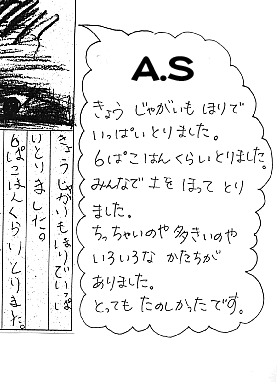 A.S
きょう じゃがいも ほりで
いっぱいとりました。
6ぱこはんくらいとりました。
みんなで土をほって とり
ました。
ちっちゃいのや 多きいのや
いろいろな かたちが
ありました。
とっても たのしかったです。
きょうじゃがいもほりでいっぱ
いとりました。
6ぱこはんくらいとりました。